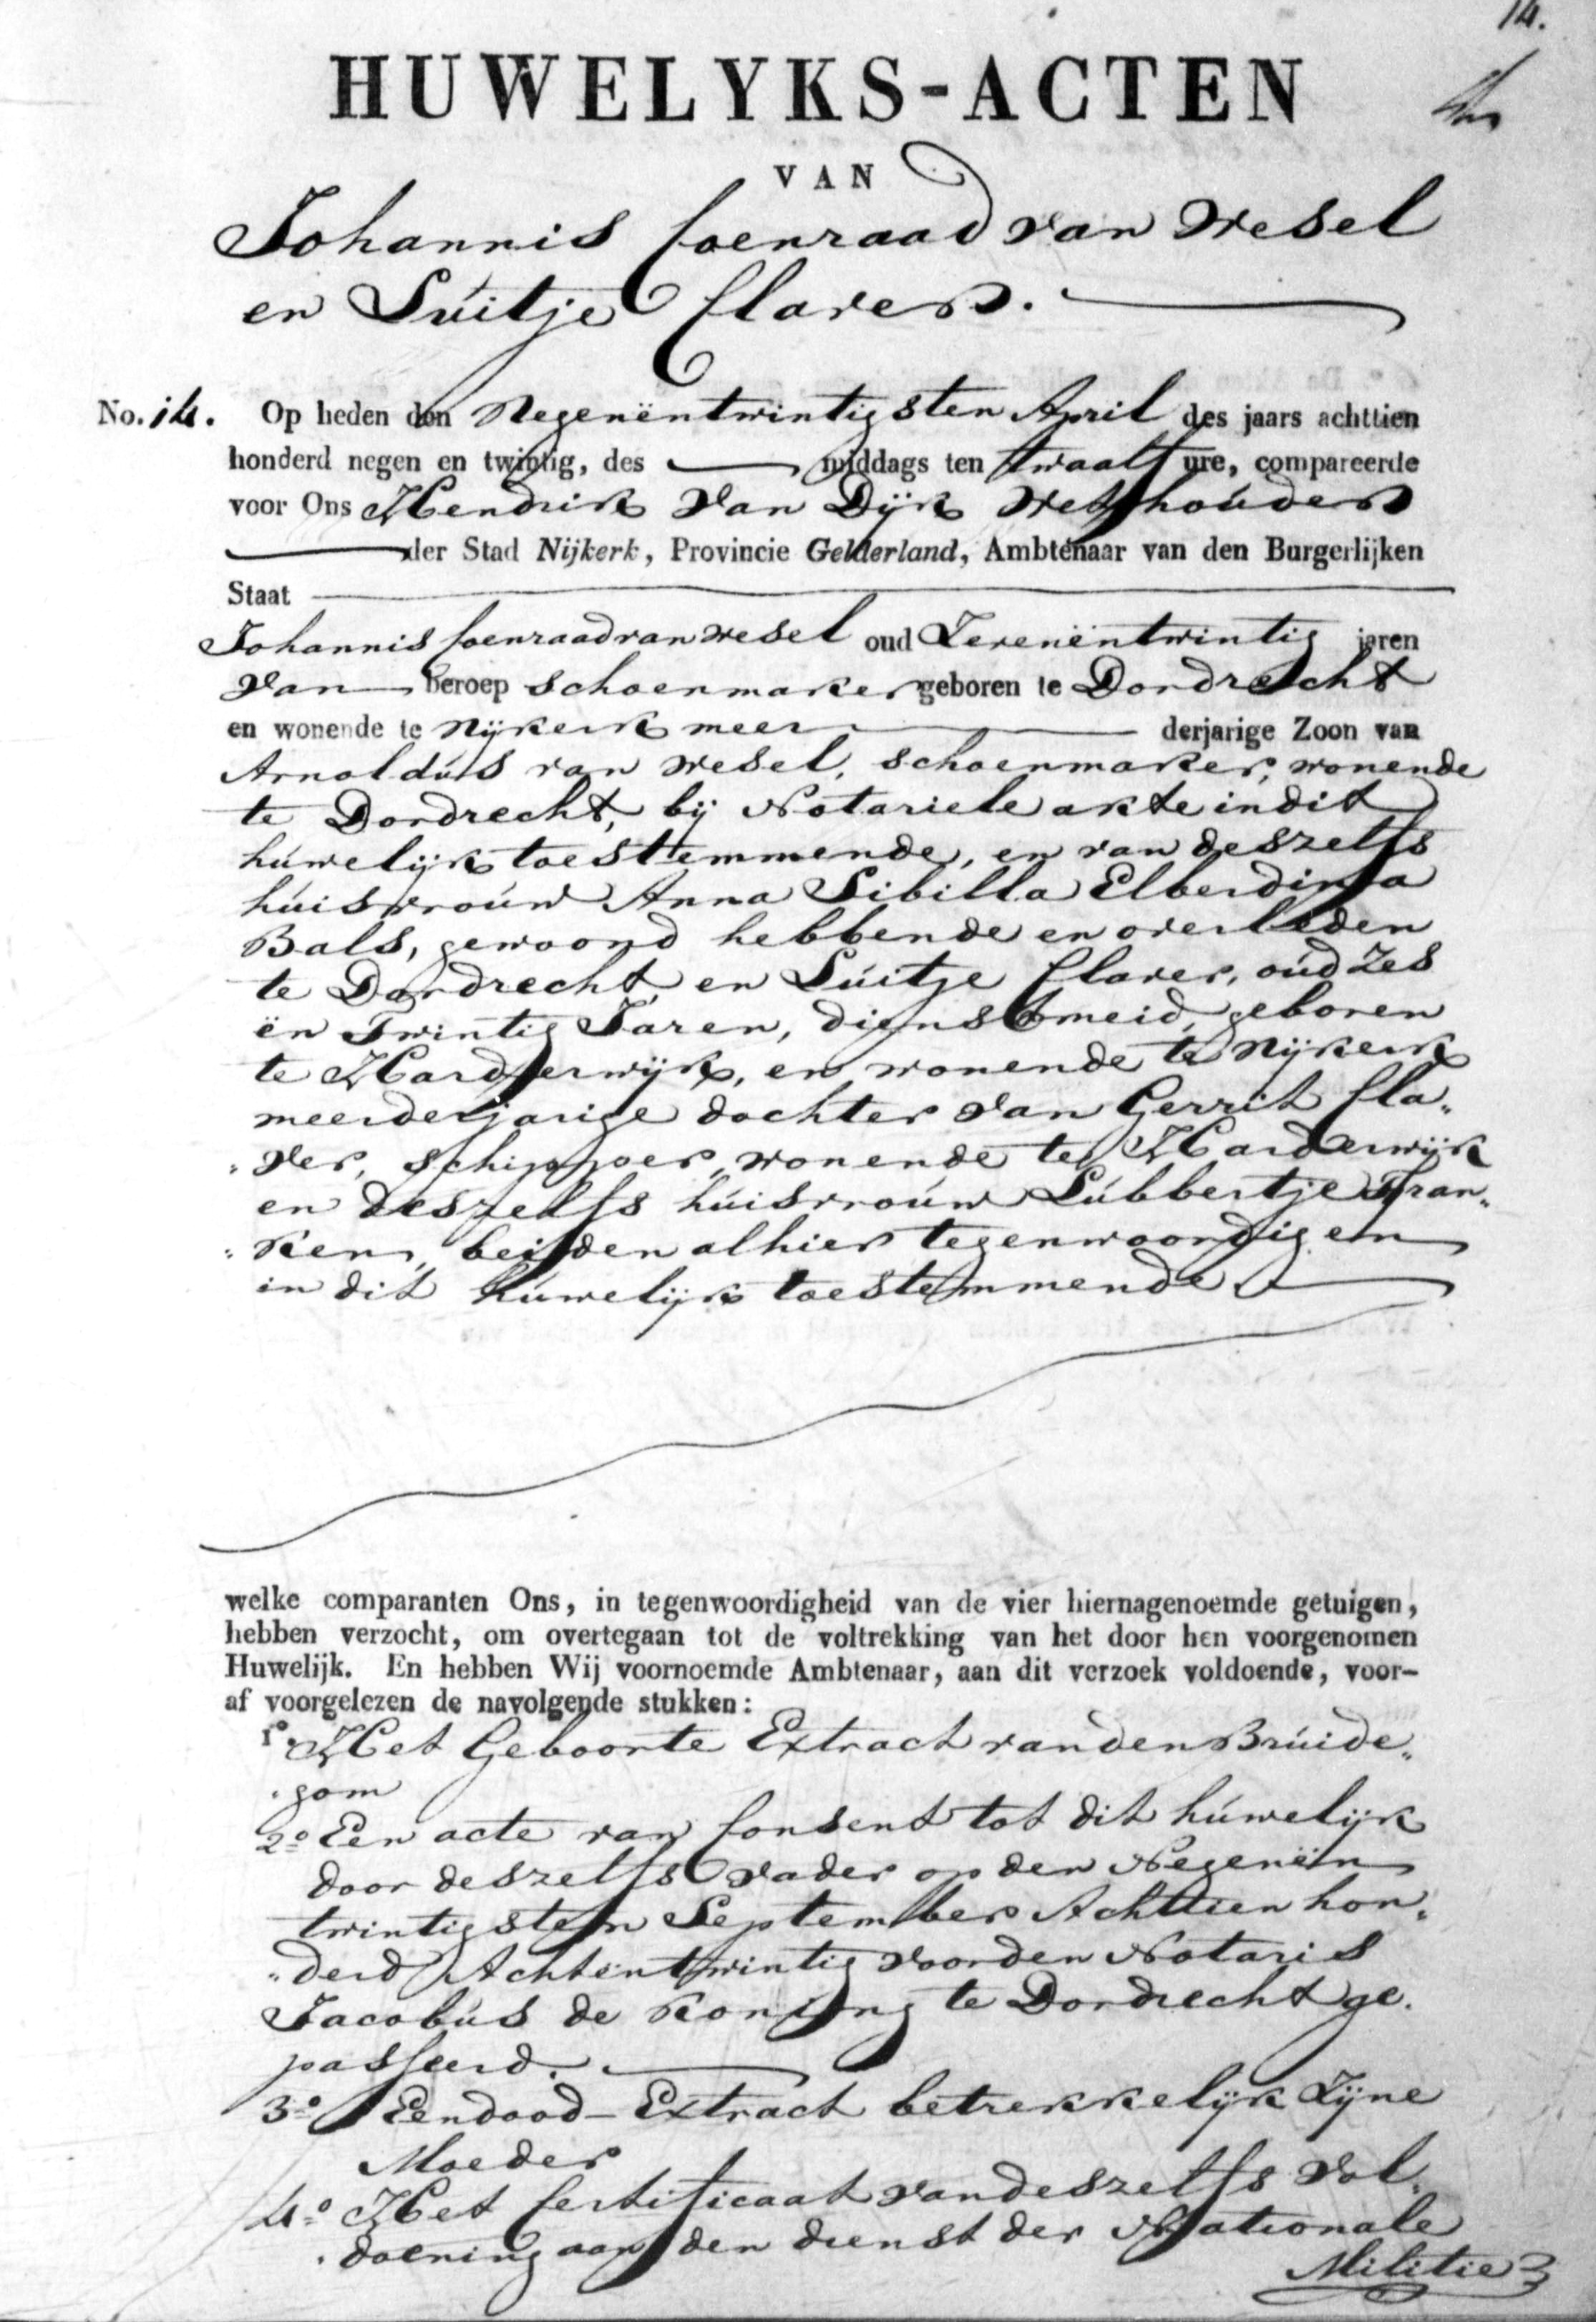 14.
HUWELYKS-ACTEN
VAN
Johannis Coenraad van Wesel
en Luitje Claver.
No. 14. Op heden den Negenëntwintigsten April des jaars achttien
honderd negen en twintig, des middags ten twaalf ure, compareerde
voor Ons Hendrik van Dijk Wethouder
der Stad Nijkerk, Provincie Gelderland, Ambtenaar van den Burgerlijken
Staat
Johannis Coenraad van Wesel oud Zevenëntwintig jaren
van beroep schoenmaker geboren te Dordrecht
en wonende te Nijkerk meer derjarige Zoon van
Arnoldus van Wesel, schoenmaker, wonende
te Dordrecht, bij Notariele akte in dit
huwelijk toestemmende, en van deszelfs
huisvrouw Anna Sibilla Elberdina
Bals, gewoond hebbende en overleden
te Dordrecht en Luitje Claver, oud Zes
ën Twintig Jaren, dienstmeid, geboren
te Harderwijk, en wonende te Nijkerk
meerderjarige dochter van Gerrit Cla„
„ver, schipper, wonende te Harderwijk
en deszelfs huisvrouw Lubbertje Fran„
„ken, beijden alhier tegenwoordig en
in dit huwelijk toestemmende
welke comparanten Ons, in tegenwoordigheid van de vier hiernagenoemde getuigen,
hebben verzocht, om overtegaan tot de voltrekking van het door hen voorgenomen
Huwelijk. En hebben Wij voornoemde Ambtenaar, aan dit verzoek voldoende, voor-
af voorgelezen de navolgende stukken:
1º. Het Geboorte Extract van den Bruide„
„gom
2º Een acte van Consent tot dit huwelijk
door deszelfs vader op den Negenën
twintigsten September Achttien hon„
„derd Achtëntwintig voor den Notaris
Jacobus de Koning te Dordrecht ge„
passeerd.
3º Een dood-Extract betrekkelijk Zijne
Moeder
4º Het Certificaat van deszelfs vol„
„doening aan den dienst der Nationale
Militie